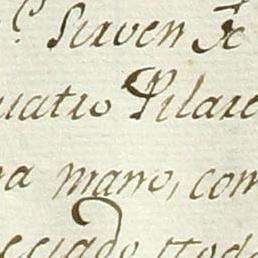 Sirven de
uatro Pilare
a mano, com
cciado, ttod